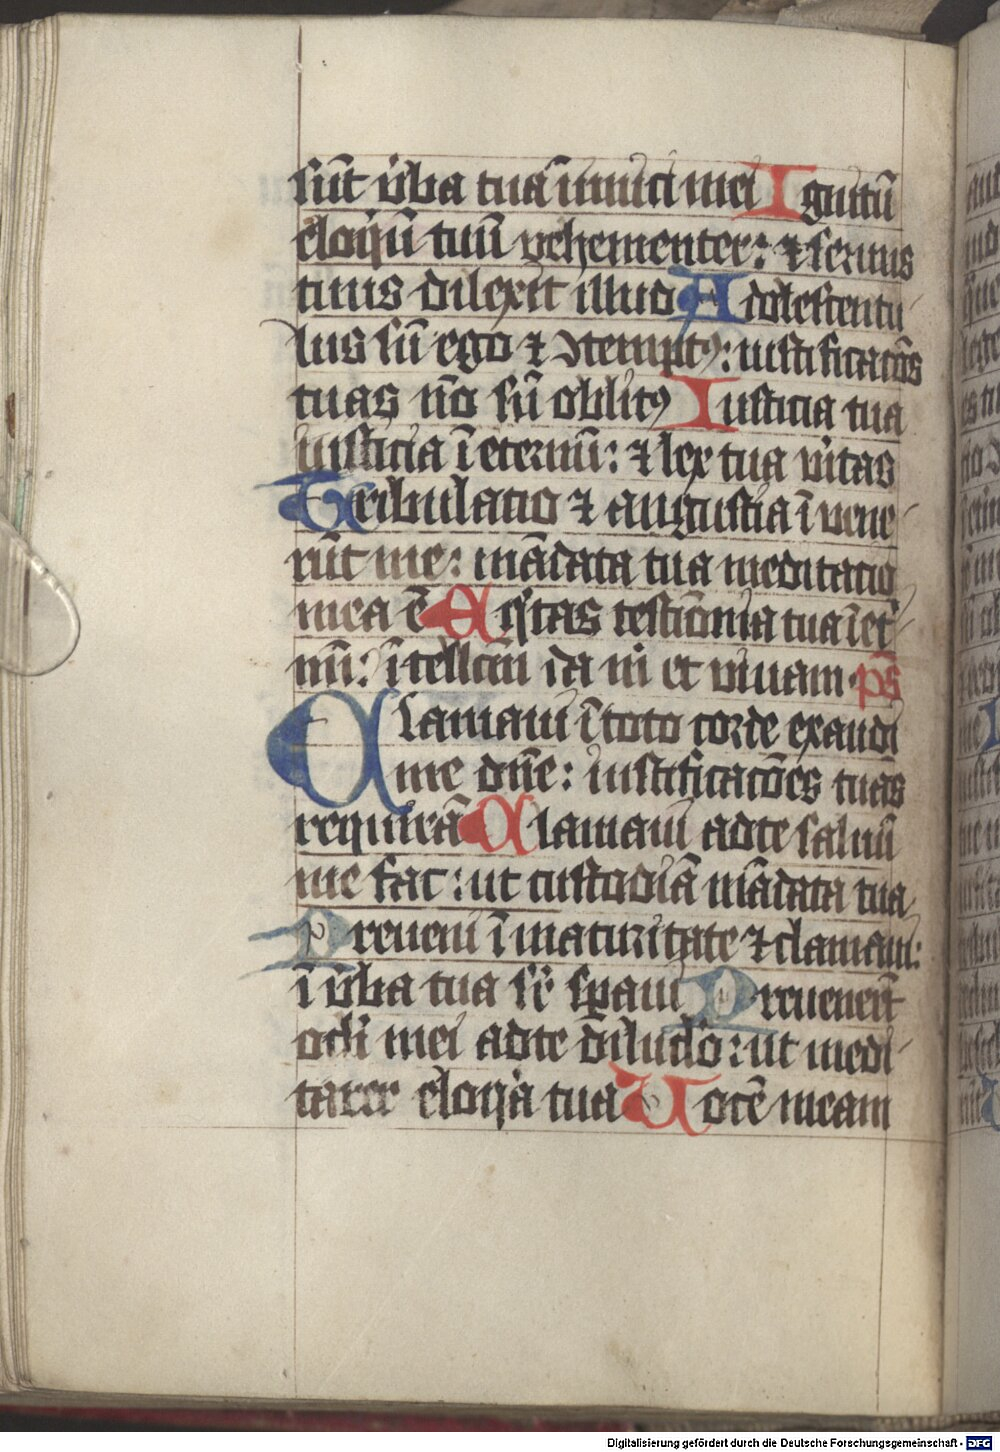 sūt ůba tua īimici mei Ignitū
eloqiū tuū vehementer: ⁊ seruus
tuus dilexit illud Adolescentu
lus sū ego ⁊ ɔtemptꝰ: iustificacōs
tuas nō sū oblitꝰ Iusticia tua
iusticia ī eternū: ⁊ lex tua vītas
Tribulatio ⁊ angustia īuene
rūt me: mādata tua meditatio
mea ē Eqͥtas testiōnia tua ī et̾
nū: ītellcm̄ da m̄ et viuam ps̄
Clamaui ī toto corde exaudi
me dn̄e: iustificacōes tuas
requirā Clamaui ad te saluū
me fac: ut custodiā mādata tua
Preueni ī maturitate ⁊ clamaui:
ī ůba tua sꝑ sꝑaui Preuenerūt
ocl̄i mei ad te diluclo: ut medi
tarer eloqͥa tua Uocē meam
Digitalisierung gefördert durch die Deutsche Forschungsgemeinschaft - DFG